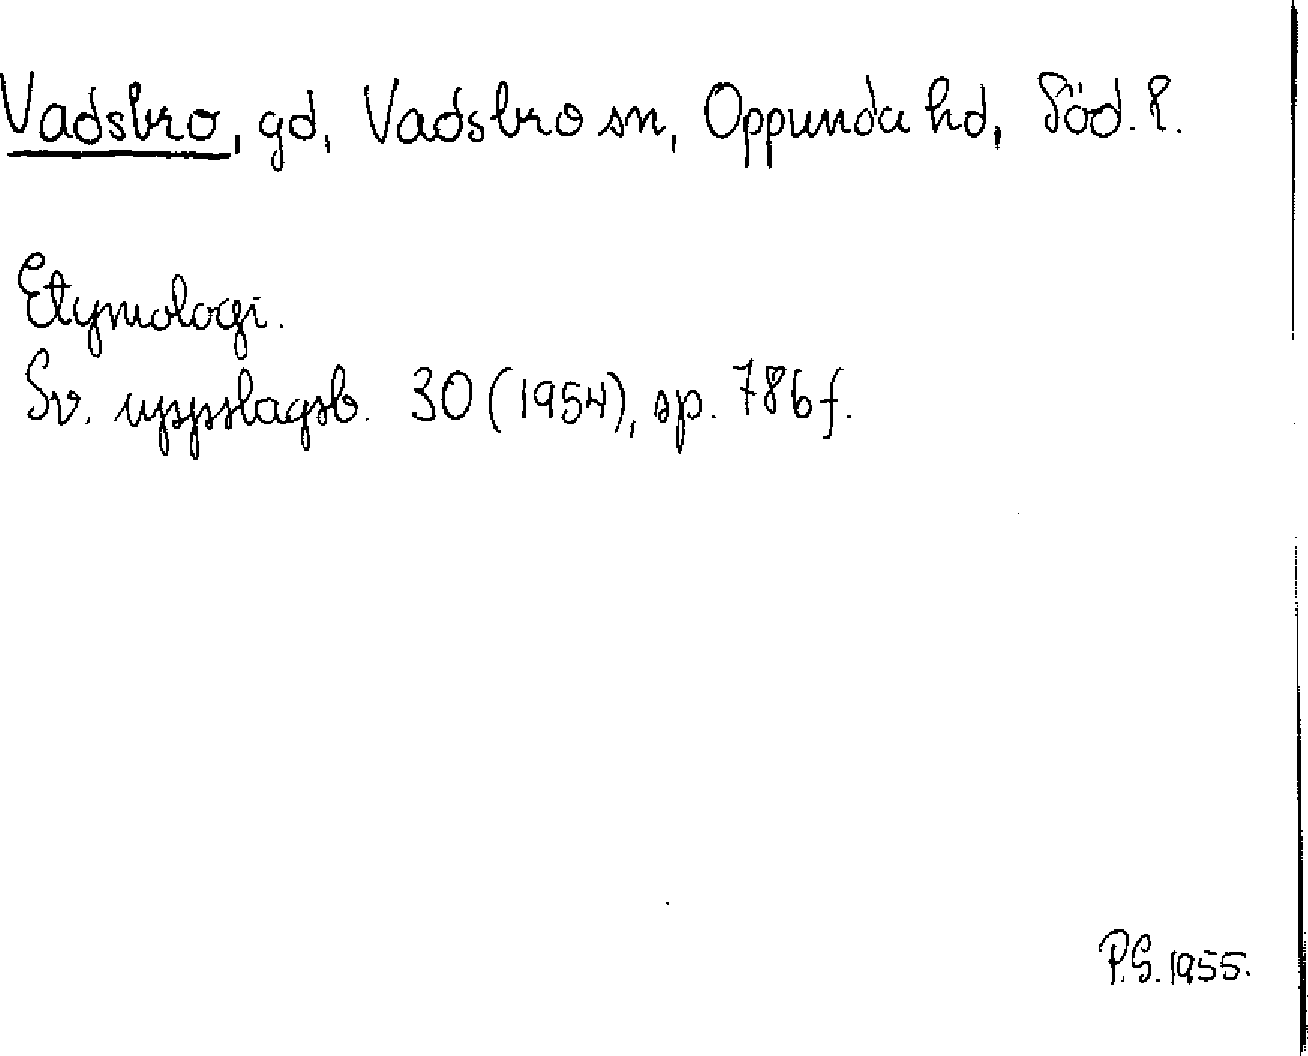 Vadsbro, gd, Vadsbro sn, Oppunda hd, Söd. l.
Etymologi.
Sv. uppslagsb. 30 (1954), sp. 786 f.
P.G. 1955.